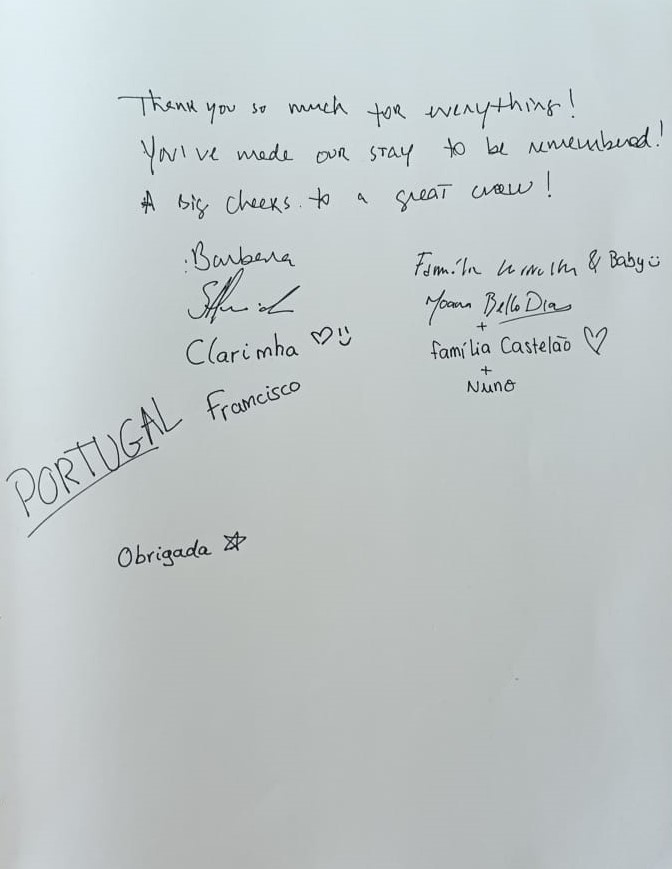 Thank you so much for everything!
You've made our stay to be remembered!
A big cheers to a great crew!
Barbara
Clarinha ♡
Francisco
Família & Baby
Bello Dias
+
família Castelão ♡
+
Nuno
PORTUGAL
Obrigada ☆